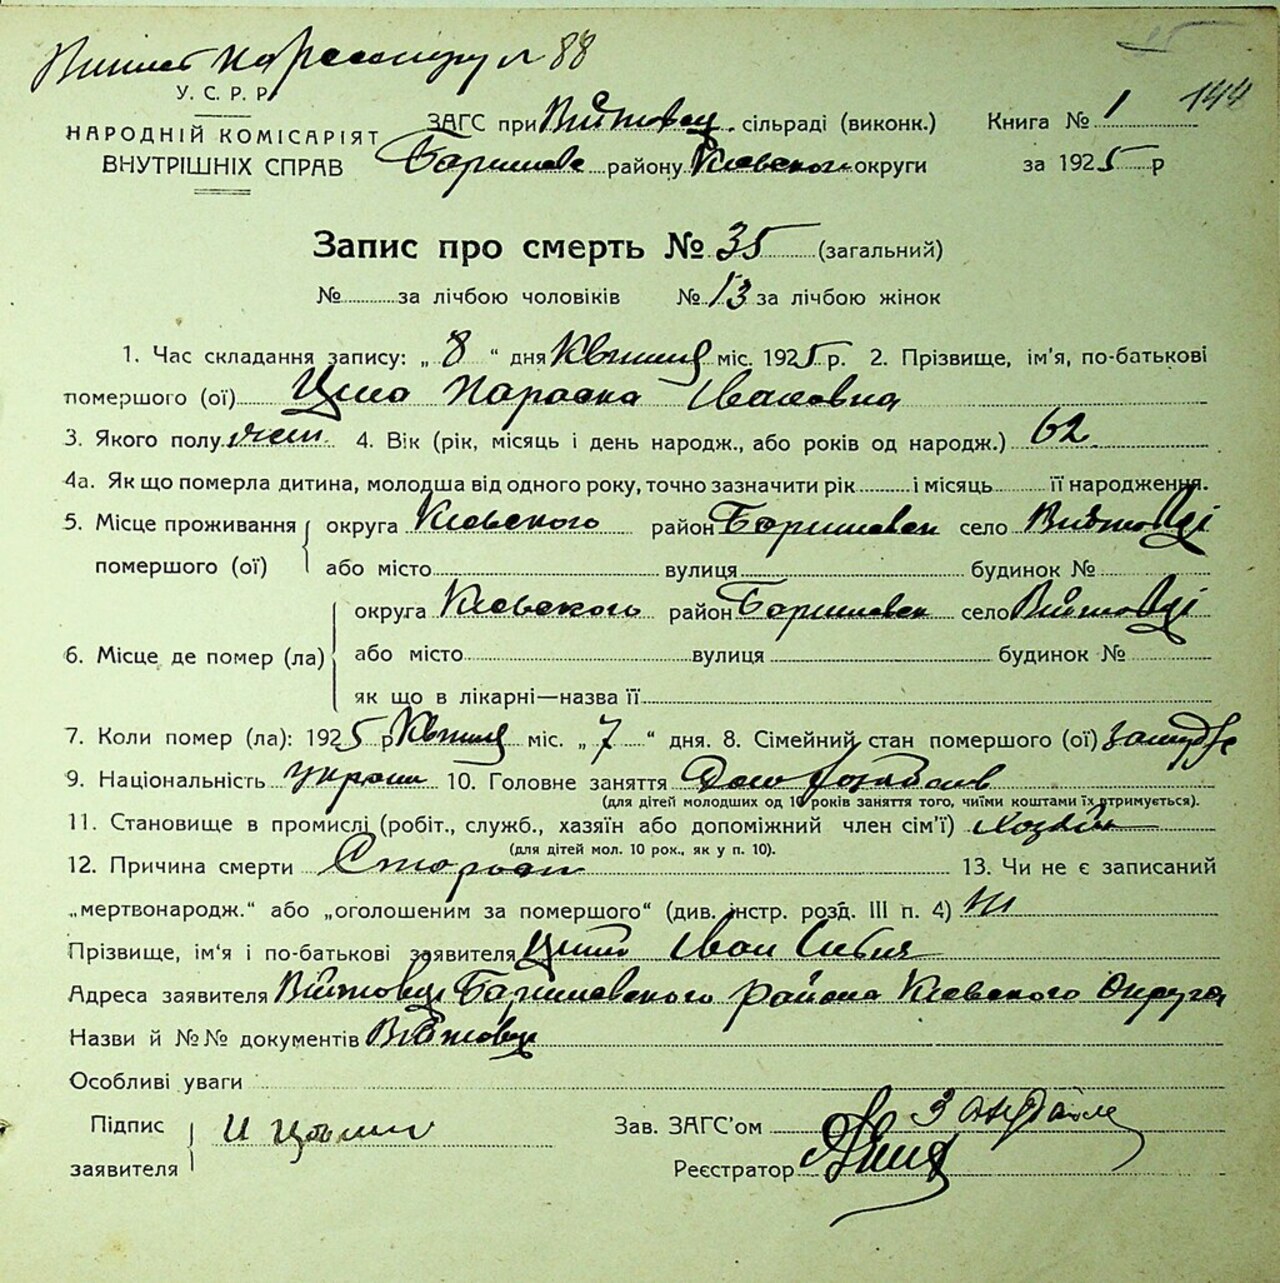 по Реестру № 88
У. С. Р. Р.
НАРОДНІЙ КОМІСАРІЯТ
ВНУТРІШНІХ СПРАВ
ЗАГС при Війтовец. сільраді (виконк.)
Баришев районy Киевского округи
Книга № 1
144
за 1925 р
Запис про смерть № 35 (загальний)
№ за лічбою чоловіків № 13 за лічбою жінок
1. Час складання запису: „ 8 “ дня Квітня міс. 1925 р. 2. Прізвище, ім'я, по-батькові
помершого (ої) Параска Івановна
3. Якого полу жен. 4. Вік (рік, місяць і день народж., або років од народж.) 62
4а. Як що померла дитина, молодша від одного року, точно зазначити рік і місяць її народження.
5. Місце проживання помершого (ої) округа Киевского район Баришевск село Війтовці
або місто вулиця будинок №
6. Місце де помер (ла) округа Киевского район Баришевск село Війтовці
або місто вулиця будинок №
як що в лікарні—назва її
7. Коли помер (ла): 1925 р Квітня міс. „ 7 “ дня. 8. Сімейний стан помершого (ої)
9. Національність україн 10. Головне заняття
(для дітей молодших од 10 років заняття того, чиїми коштами їх втримується).
11. Становище в промислі (робіт., служб., хазяїн або допоміжний член сім'ї) Хозяїн
(для дітей мол. 10 рок., як у п. 10).
12. Причина смерти 13. Чи не є записаний
„мертвонародж.“ або „оголошеним за помершого“ (див. інстр. розд. III п. 4) Ні
Прізвище, ім'я і по-батькові заявителя Іван
Адреса заявителя Війтовці Баришевского района Киевского Округа
Назви й №№ документів
Особливі уваги
Підпис заявителя И
Зав. ЗАГС'ом
Реєстратор